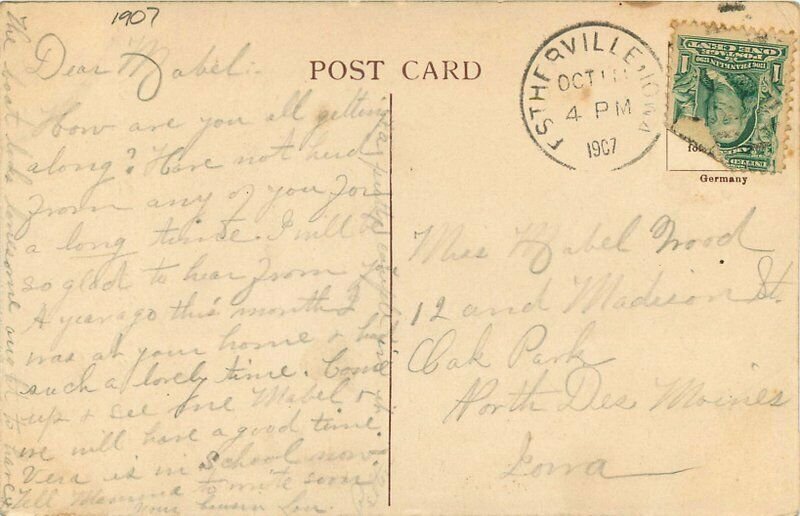 1907
Dear Mabel:-
How are you all getting
along? Have not herd
from any of you for
a long time. I will be
so glad to hear from you
A year ago this month I
was at your home & had
such a lovely time. Come
up & see me Mabel &
we will have a good time.
Vera is in School now
Tell Mamma to write soon.
Your cousin
The boat looks lonesome
POST CARD
ESTHERVILLE, IOWA
OCT
4 PM
1907
POSTAGE
ONE CENT
1
1
Germany
Miss Mabel Wood
12 and Madison St.
Oak Park
North Des Moines
Iowa